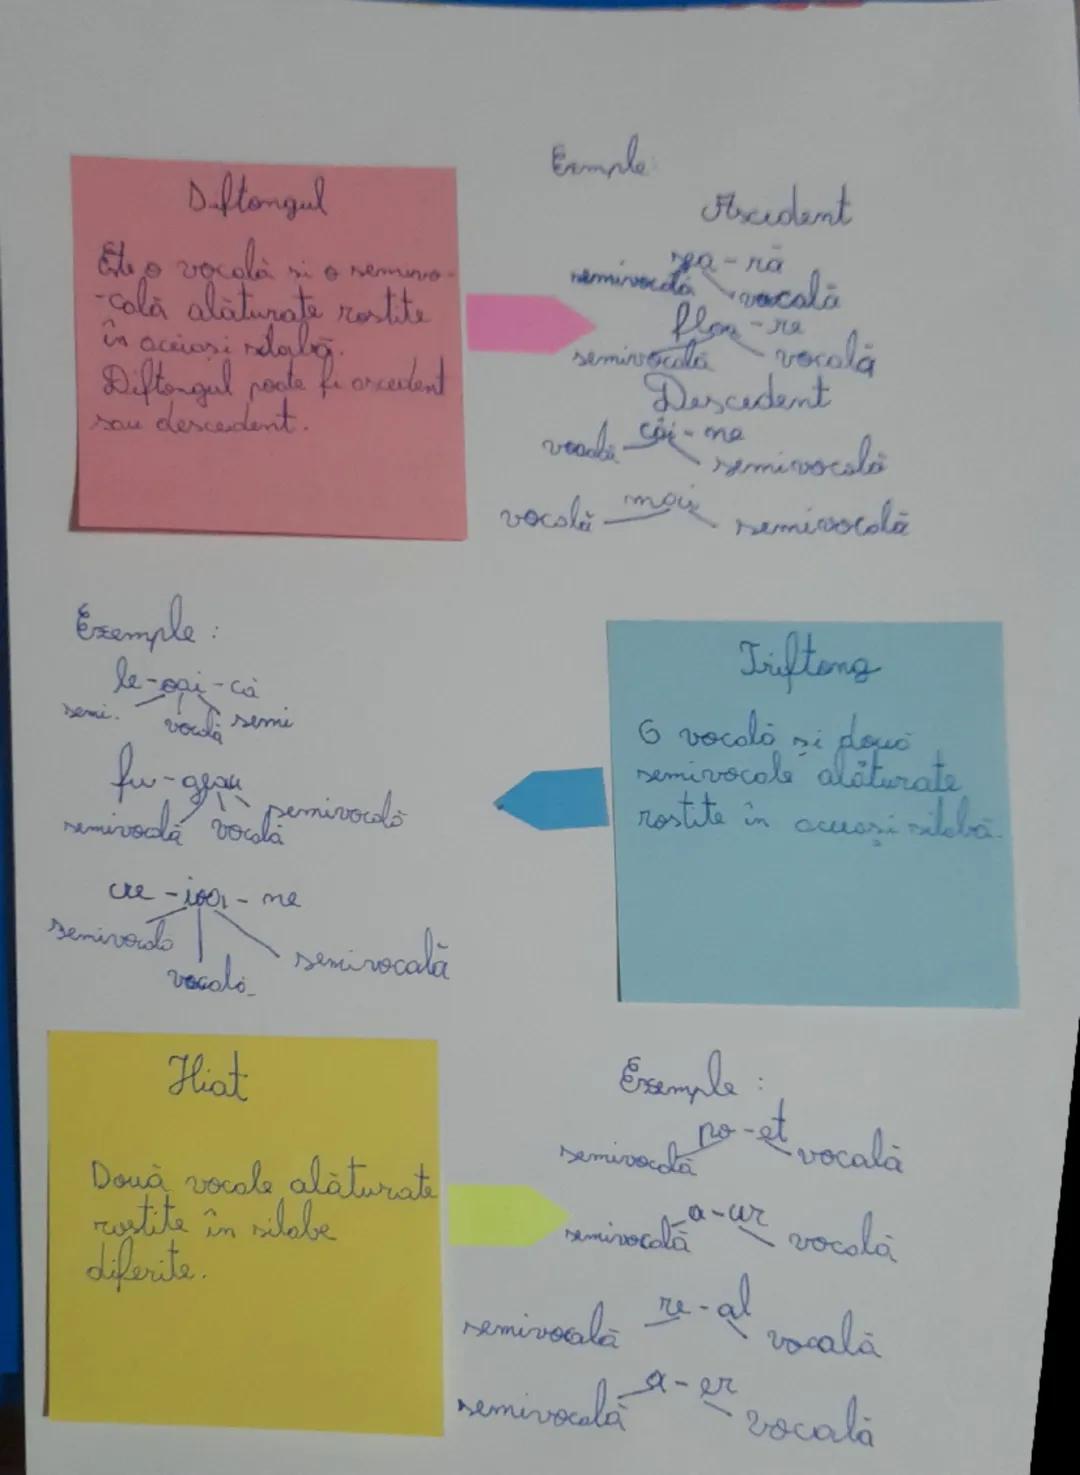 Diftongul
Este o vocală si o semivo-
-cală alăturate rostite
în aceiasi silabă.
Diftongul poate fi ascedent
sau descedent.
Exmple:
Ascedent
sea-ră
semivocală vocală
floa-re
semivocală vocală
Descedent
câi-ne
vocală semivocală
mai
vocală semivocală
Exemple:
le-oai-că
semi. vocală semi
fu-geau
semivocală vocală semivocală
cre-ioa-ne
semivocală vocală semivocală
Triftong
O vocală și două
semivocale alăturate
rostite în aceiași silabă.
Hiat
Două vocale alăturate
rostite în silabe
diferite.
Exemple:
po-et
semivocală vocală
a-ur
semivocală vocală
re-al
semivocală vocală
a-er
semivocală vocală